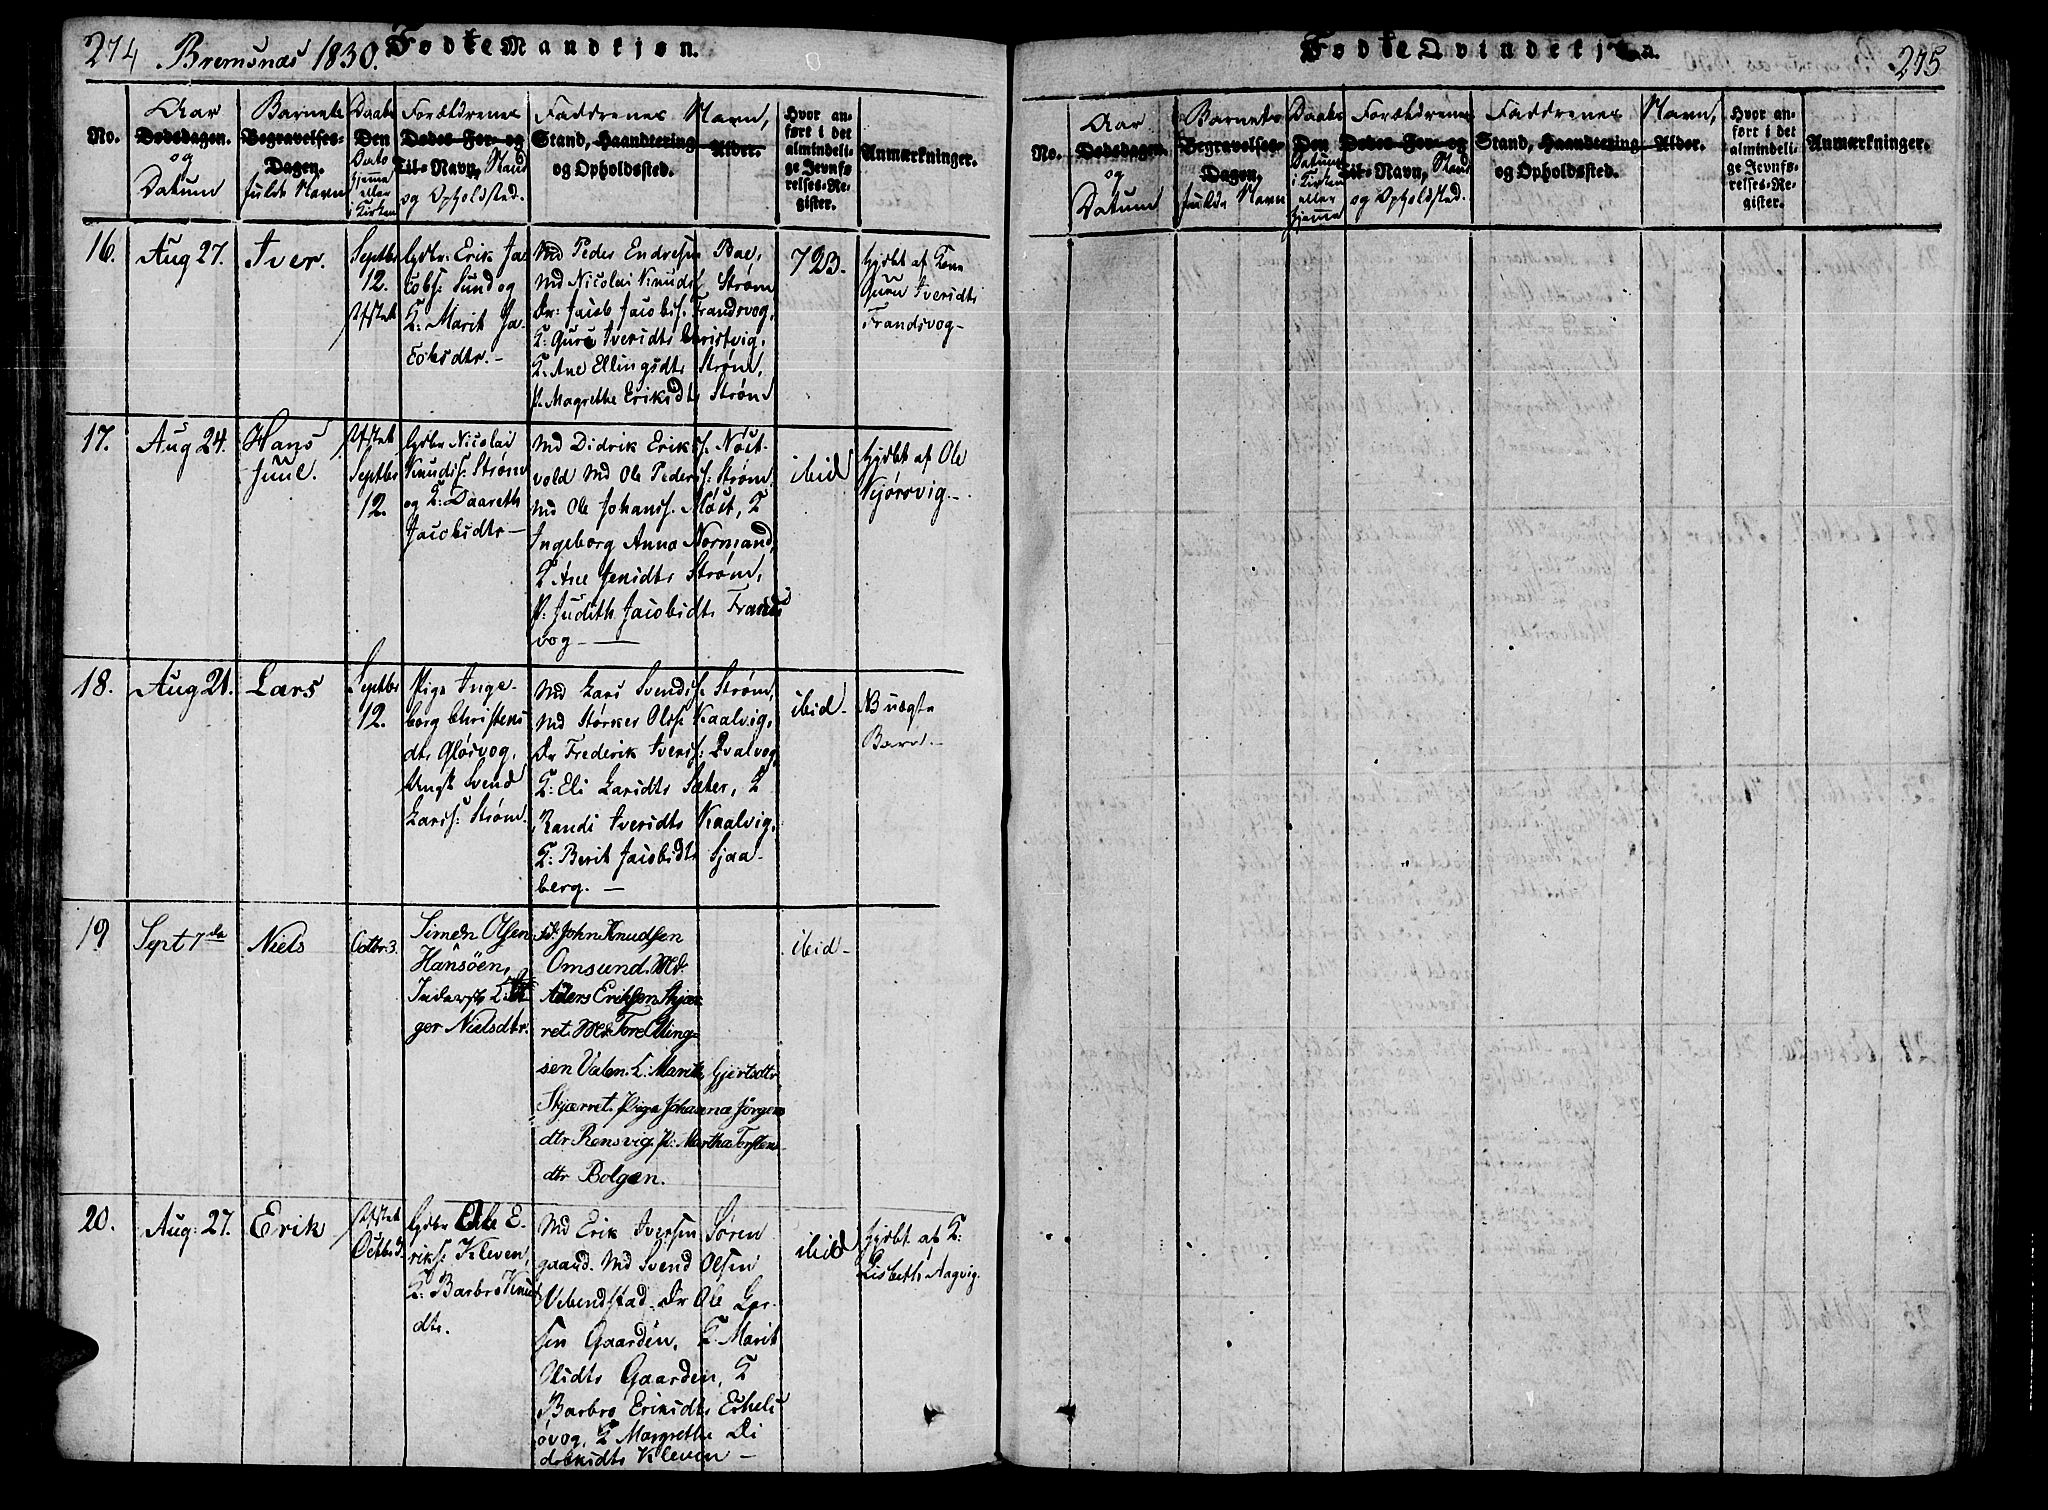 274 Bremsnæs 1830. Fødte Mandkjøn.
No.
Aar
Dødsdagen.
og
Datum
Barnets
Begravelses-
Dagen.
fulde Navn
Daabs
Den
Dato
hjemme
eller
i Kirken
Forældrenes
Dødes For- og
Til-Navn, Stand
og Opholdsted.
Faddrenes Navn,
Stand, Haandtering Alder.
og Opholdssted.
Hvor an-
ført i det
almindeli-
ge Jevnfø-
relses-Re-
gister.
Anmærkninger.
16. Aug 27. Iver.
Septbr
12.
Gdbr: Erik Ja-
cobs: Sund og
K: Marit Ja-
cobsdtr.-
Md Peder Endresen Bae,
Md Nicolai Knuds: Strøm
Dr: Jacob Jacobss: Frandsvog,
K: Guru Iversdtr Christvig,
K: Ane Ellingsdtr Strøm,
P. Magrethe Eriksdtr Strøn
723.
hjdbt af Kone
Guru Iversdtr
Frandsvog-
17. Aug 24. Hans
Juul.
Septbr
12.
Gdbr Nicolai
Knudss: Strøm
og K: Daareth
Jacobsdtr-
Md Didrik Erikss. Nøst-
vold Md Ole Pederss: Strøm.
Md Ole Johanss. Nøst, K
Ingeborg Anna Normand,
K Ane Jensdtr Strøm,
P: Judith Jacobsdtr Frands
vog -
ibid
hjdbt af Ole
Kjørsvig.-
18. Aug 21. Lars
Septbr
12.
Pige Inge-
borg Christens
dtr Gløsvog,
Ungk Svend
Larss: Strøm.
Md Lars Svendss. Strøm,
Md Størker Olss. Kaalvig,
Dr Frederik Iverss: Qvalvog
K: Eli Larsdtr Sæter, K
Randi Iversdtr Kaalvig,
K: Berit Jacobsdtr Sjaa-
berg. -
ibid-
NB uægte
Barn.-
19 Sept 7de Niels Octbr 3.
Simen Olsen
Hansöen,
ger Nielsdtr.
John Knudsen
Omsund. Md.
Anders Eriksen Skjær
ret. Md. Tore Elling-
sen Valen. K. Marith Gjertsdtr
Skjærret. Pige Johanna Jörgens
dtr Rensvig. P: Martha Torstens-
dtr Bolgen.
ibid-
20. Aug: 27. Erik
Octbr 3.
Gdbr Ole E-
rikss: Kleven,
K: Barbro Knuds
dtr.
Md Erik Iversen Søren
gaard. Md Svend Olsen
Vebenstad. Dr Ole Lar-
sen Gaarden, K. Marit
Olsdtr Gaarden, K
Barbro Eriksdtr Eskels
øvog, K Margrethe Di
driksdtr Kleven -
ibid
hjdbt af K:
Lisbeth Aagvig.
Fødte Qvindekjøn. 275
No.
Aar
Dødsdagen.
og
Datum
Barnets
Begravelses-
Dagen,
fulde Navn
Daabs
Den
Datum
i Kirken
eller
hjemme
Forældrenes
Dødes For- og
Til-Navn, Stand
og Opholdsted.
Faddrenes Navn,
Stand, Haandtering Alder.
og Opholdssted.
Hvor an-
ført i det
almindeli-
ge Jevnfø-
relses-Re-
gister.
Anmærkninger.